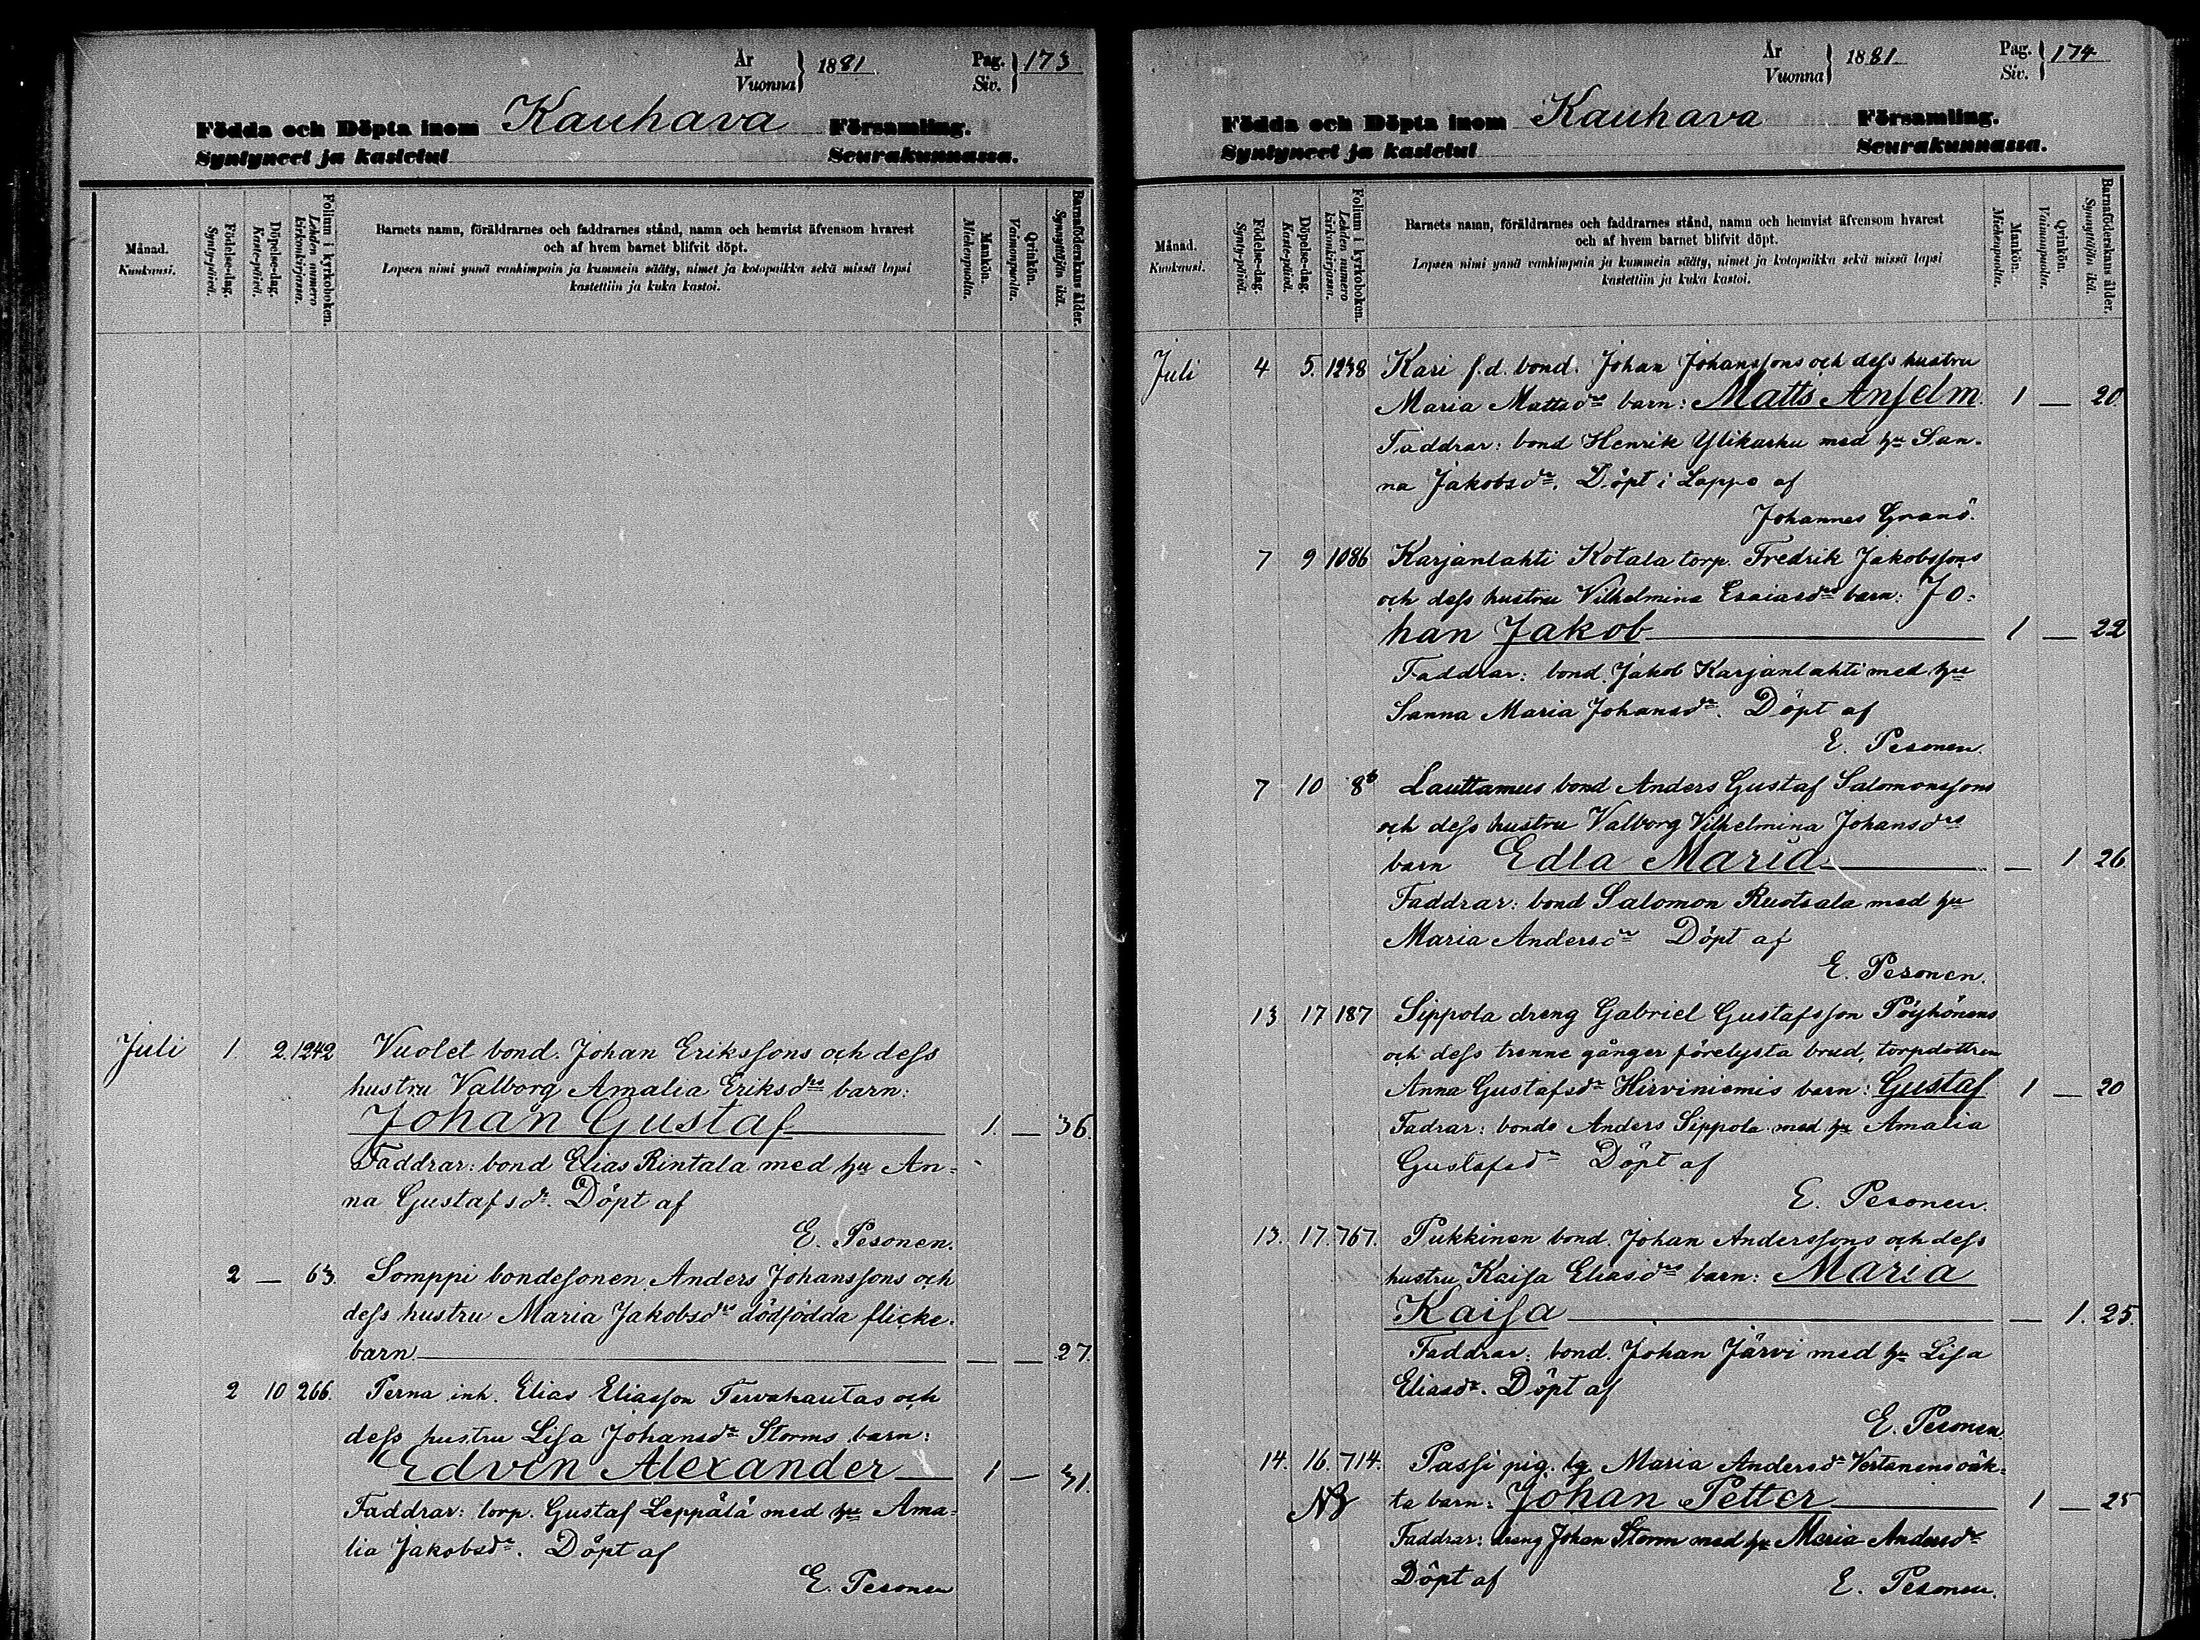 År
Vuonna } 1881
Pag.
Siv. } 173
Födda och Döpta inom Kauhava Församling.
Syntyneet ja kastetut Seurakunnassa.
Månad.
Kuukausi.
Födelse-dag.
Synty-päivä.
Döpelse-dag.
Kaste-päivä.
Folium i kyrkoboken.
Lehden numero kirkonkirjassa.
Barnets namn, föräldrarnes och faddrarnes stånd, namn och hemvist äfvensom hvarest
och af hvem barnet blifvit döpt.
Lapsen nimi ynnä vanhimpain ja kummein sääty, nimet ja kotopaikka sekä missä lapsi
kastettiin ja kuka kastoi.
Mankön.
Miehenpuolta.
Qvinkön.
Vaimonpuolta.
Barnaföderskans ålder.
Synnyttäjän ikä.
Juli 1. 2. 1242 Vuolet bond. Johan Erikssons och dess
hustru Valborg Amalia Eriksdrs barn:
Johan Gustaf 1 — 36.
Faddrar: bond Elias Rintala med hu An=
na Gustafsdr. Döpt af
E. Pesonen.
2 — 63. Somppi bondesonen Anders Johanssons och
dess hustru Maria Jakobsdrs dödfödda flicke-
barn — — 27.
2 10 266. Perna inh. Elias Eliasson Tervahautas och
dess hustru Lisa Johansdr Storms barn:
Edvin Alexander 1 — 31.
Faddrar: torp. Gustaf Leppälä med hu Ama=
lia Jakobsdr. Döpt af
E. Pesonen
År
Vuonna } 1881.
Pag.
Siv. } 174
Födda och Döpta inom Kauhava Församling.
Syntyneet ja kastetut Seurakunnassa.
Månad.
Kuukausi.
Födelse-dag.
Synty-päivä.
Döpelse-dag.
Kaste-päivä.
Folium i kyrkoboken.
Lehden numero kirkonkirjassa.
Barnets namn, föräldrarnes och faddrarnes stånd, namn och hemvist äfvensom hvarest
och af hvem barnet blifvit döpt.
Lapsen nimi ynnä vanhimpain ja kummein sääty, nimet ja kotopaikka sekä missä lapsi
kastettiin ja kuka kastoi.
Mankön.
Miehenpuolta.
Qvinkön.
Vaimonpuolta.
Barnaföderskans ålder.
Synnyttäjän ikä.
Juli 4 5. 1238 Kari f.d. bond. Johan Johanssons och dess hustru
Maria Mattsdrs barn: Matts Anselm. 1 — 20.
Faddrar: bond Henrik Ylikarhu med hu San-
na Jakobsdr. Döpt i Lappo af
Johannes Granö.
7 9 1086 Karjanlahti Kotala torp. Fredrik Jakobssons
och dess hustru Vilhelmina Esaiasdrs barn: Jo=
han Jakob 1 — 22
Faddrar: bond. Jakob Karjanlahti med hu
Sanna Maria Johansdr. Döpt af
E. Pesonen.
7 10 8b Lauttamus bond Anders Gustaf Salomonssons
och dess hustru Valborg Vilhelmina Johansdrs
barn Edla Maria — 1 26
Faddrar: bond Salomon Ruotsala med hu
Maria Andersdr Döpt af
E. Pesonen.
13 17 187 Sippola dreng Gabriel Gustafsson Pöyhönens
och dess trenne gånger förelysta brud, torpdottren
Anna Gustafsdr Hirviniemis barn: Gustaf 1 — 20
Fadrar: bonde Anders Sippola med hu Amalia
Gustafsdr Döpt af
E. Pesonen.
13. 17. 767. Pukkinen bond. Johan Anderssons och dess
hustru Kaisa Eliasdrs barn: Maria
Kaisa — 1. 25.
Faddrar: bond. Johan Järvi med hu Lisa
Eliasdr. Döpt af
E. Pesonen
14. 16. 714. Passi pig. lg. Maria Andersdr Vertanens oäk=
NB ta barn: Johan Petter 1 — 25
Faddrar: dreng Johan Storm med hu Maria Andersdr
Döpt af E. Pesonen.